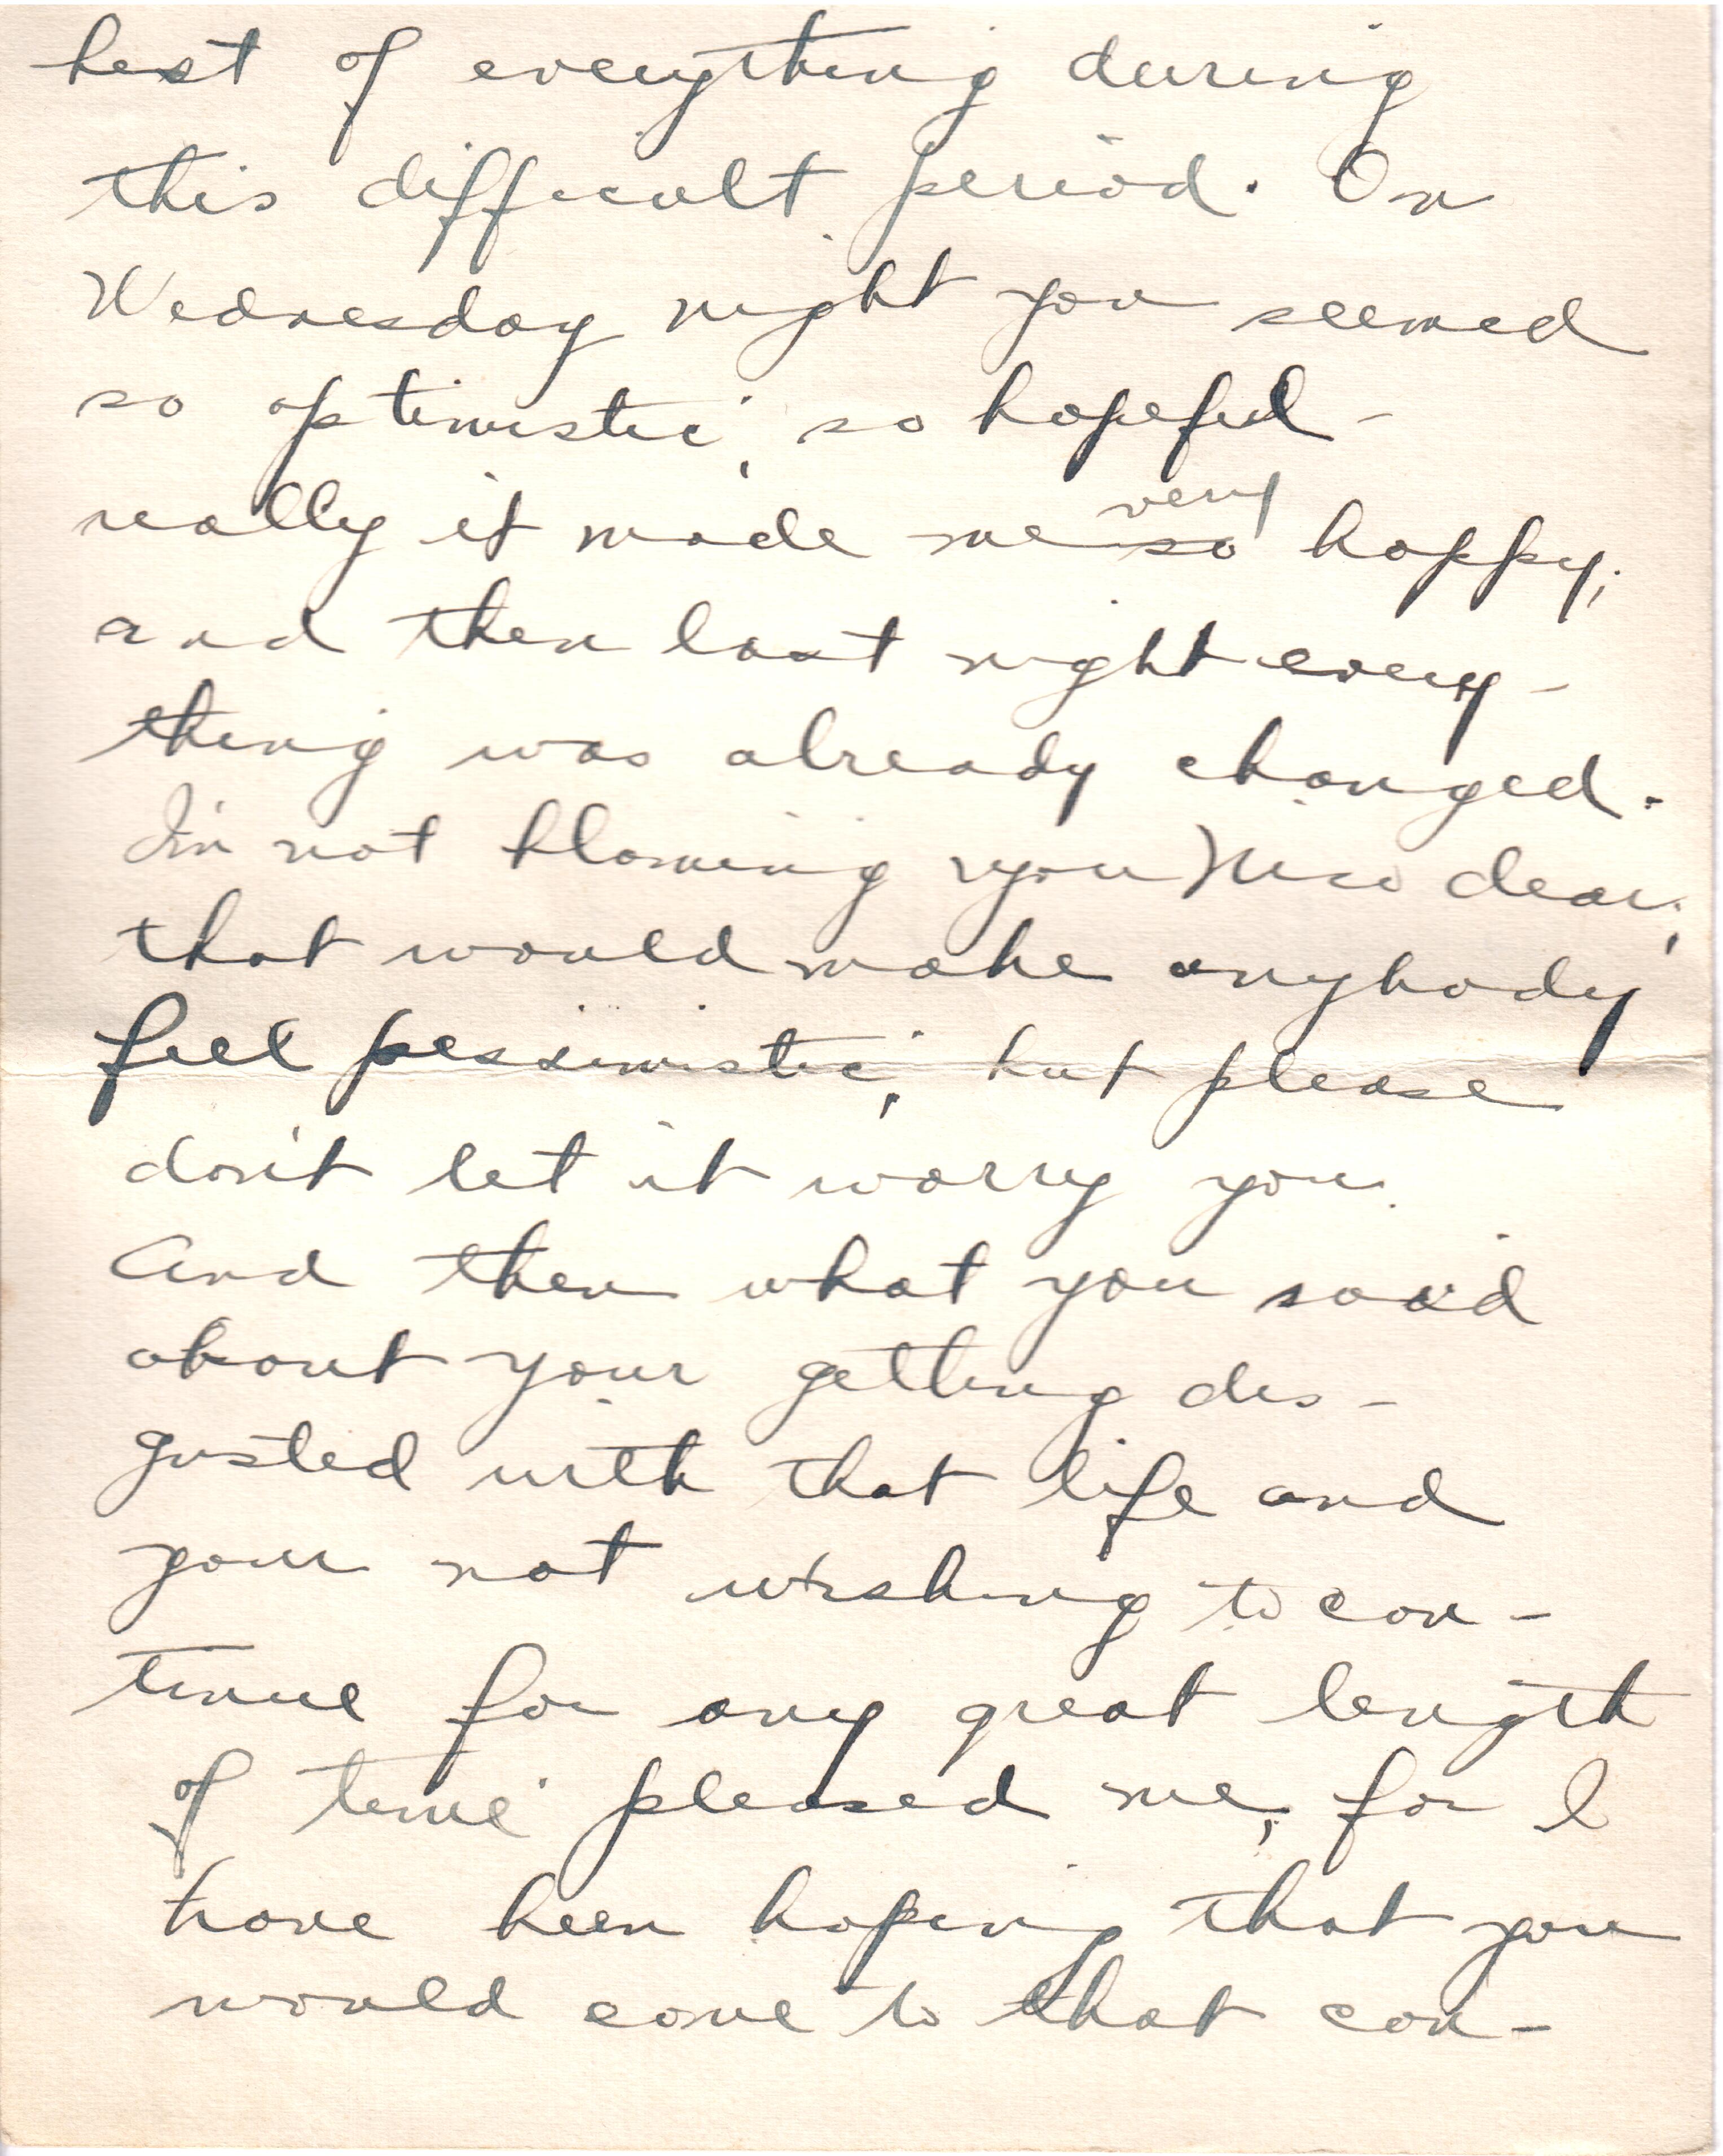 best of everything during
this difficult period. On
Wednesday night you seemed
so optimistic, so hopeful -
really it made me so very happy;
and then last night every-
thing was already changed.
I'm not blaming you dear,
that would make anybody
feel pessimistic, but please
don't let it worry you.
And then what you said
about your getting dis-
gusted with that life and
your not wishing to con-
tinue for any great length
of time pleased me, for I
have been hoping that you
would come to that con-